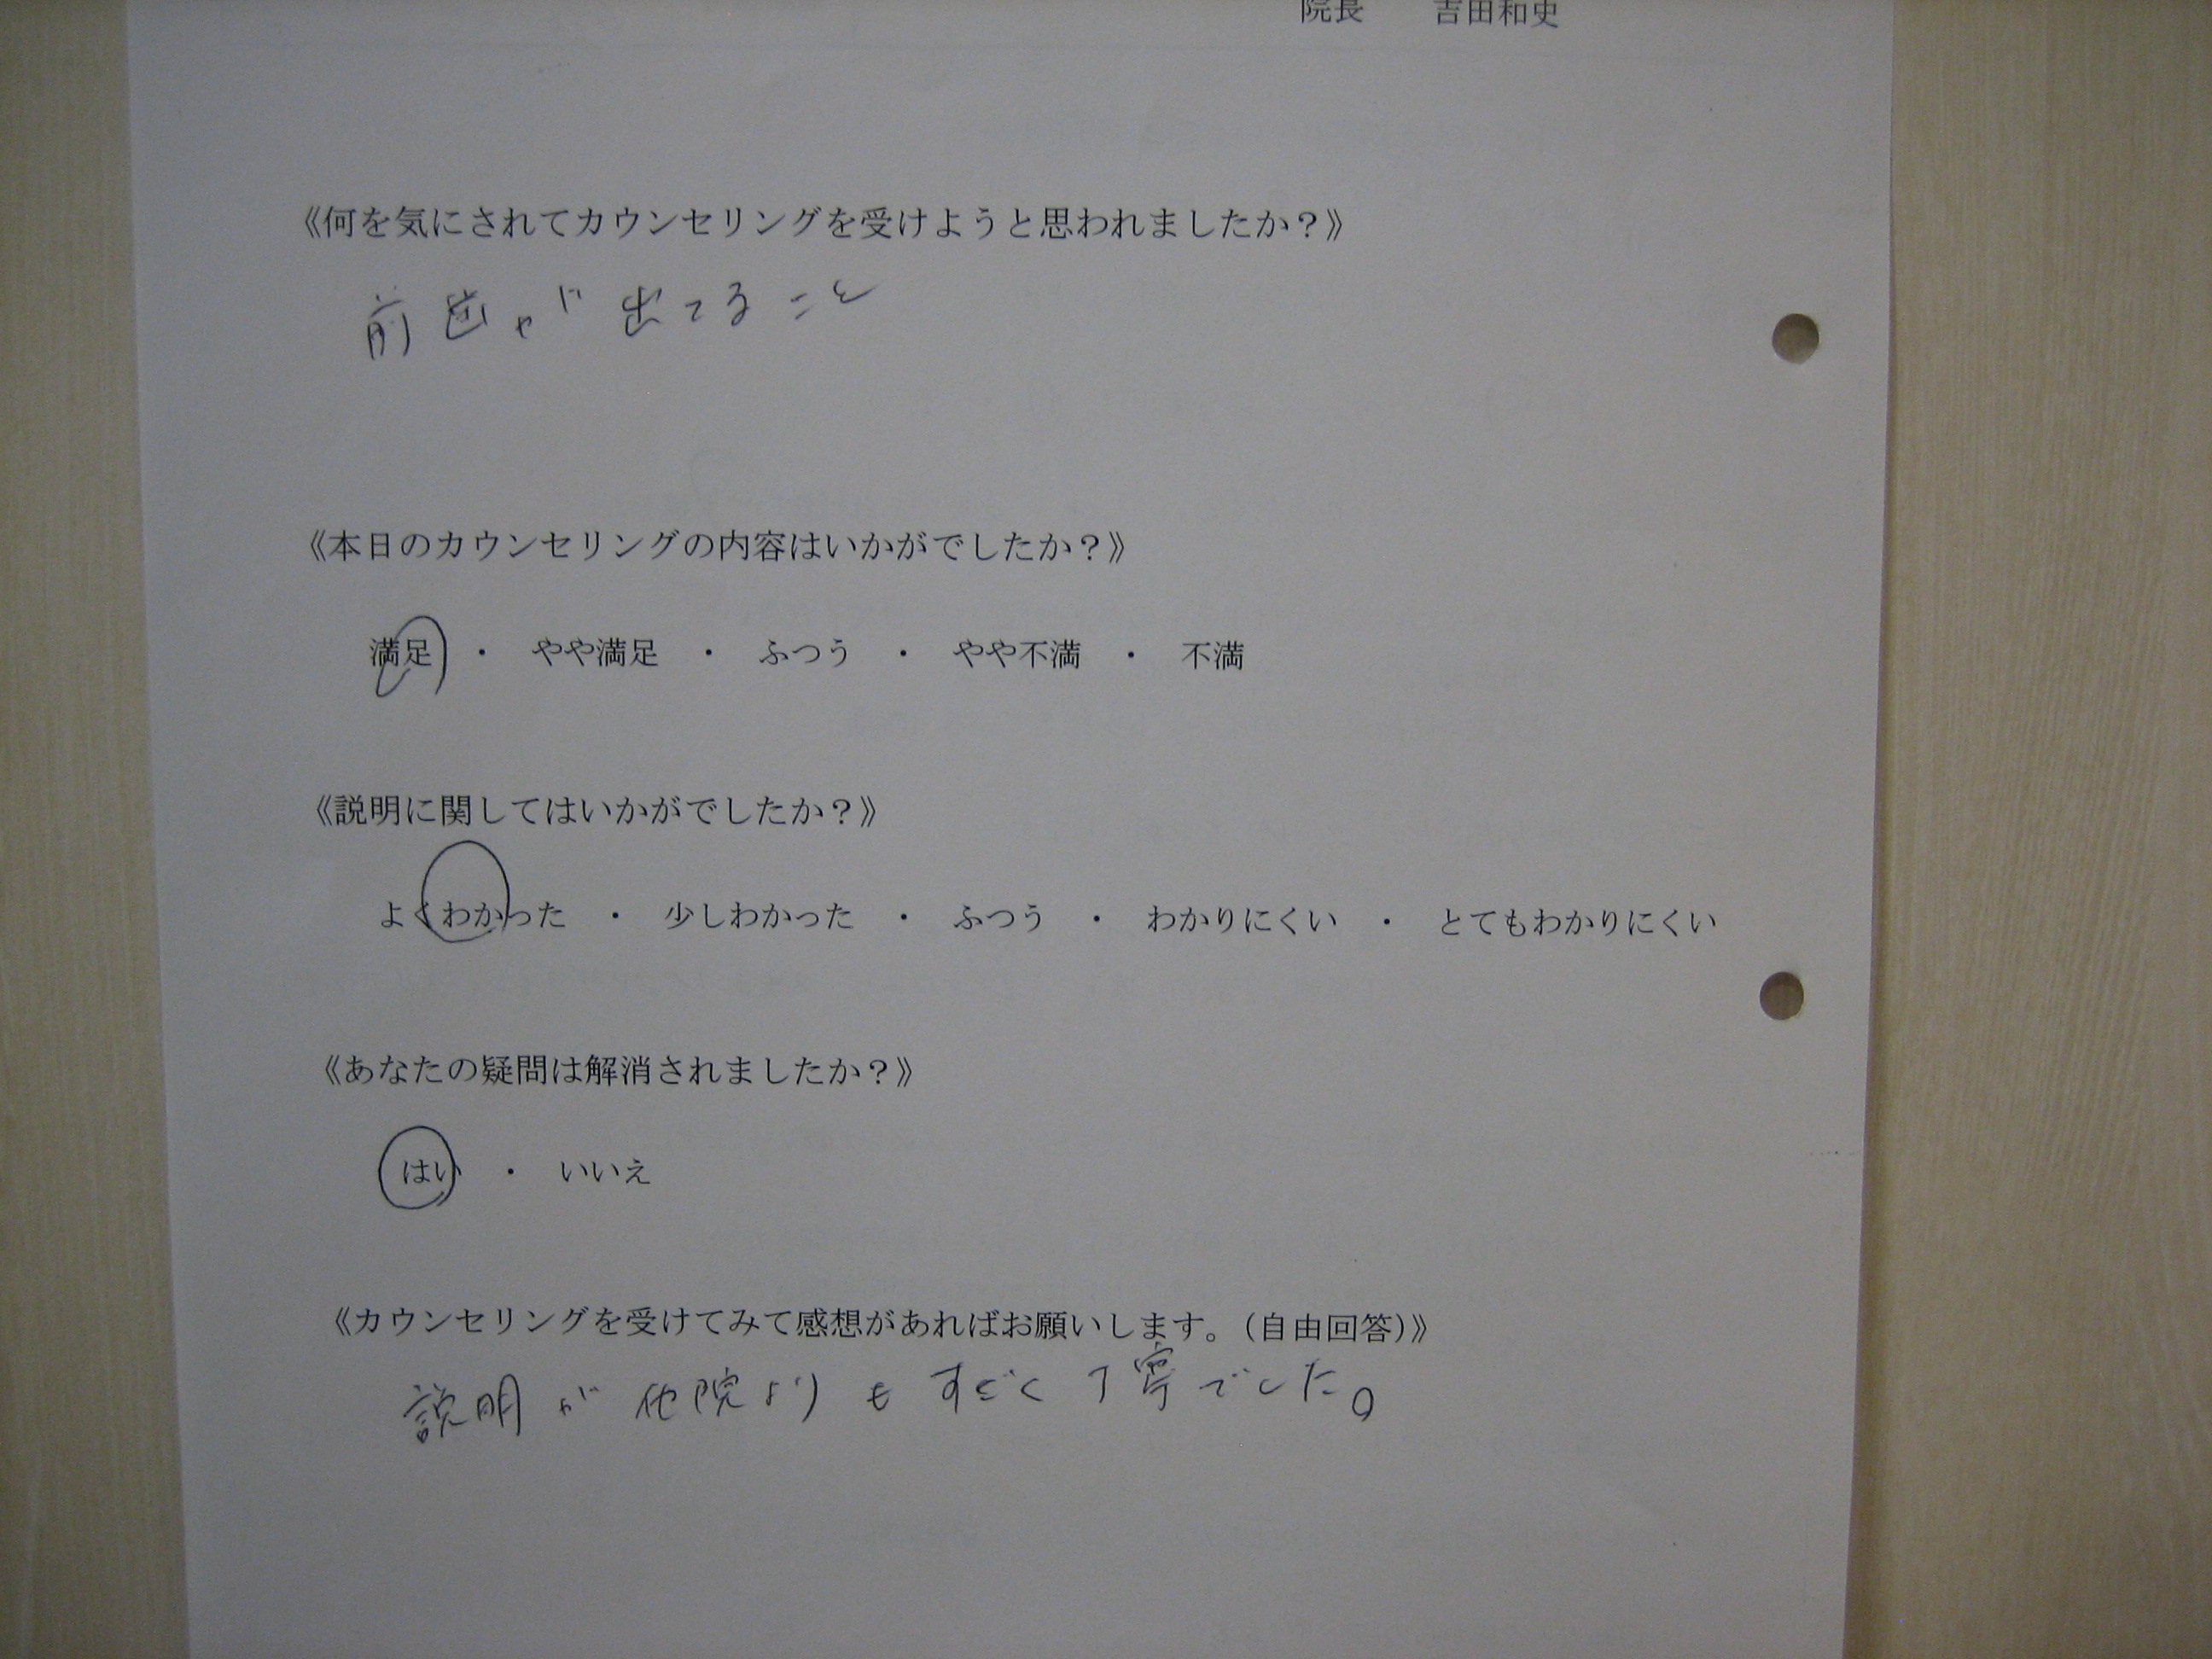 院長　吉田和史
《何を気にされてカウンセリングを受けようと思われましたか？》
前歯が出てること
《本日のカウンセリングの内容はいかがでしたか？》
満足　・　やや満足　・　ふつう　・　やや不満　・　不満
《説明に関してはいかがでしたか？》
よくわかった　・　少しわかった　・　ふつう　・　わかりにくい　・　とてもわかりにくい
《あなたの疑問は解消されましたか？》
はい　・　いいえ
《カウンセリングを受けてみて感想があればお願いします。（自由回答）》
説明が他院よりもすごく丁寧でした。